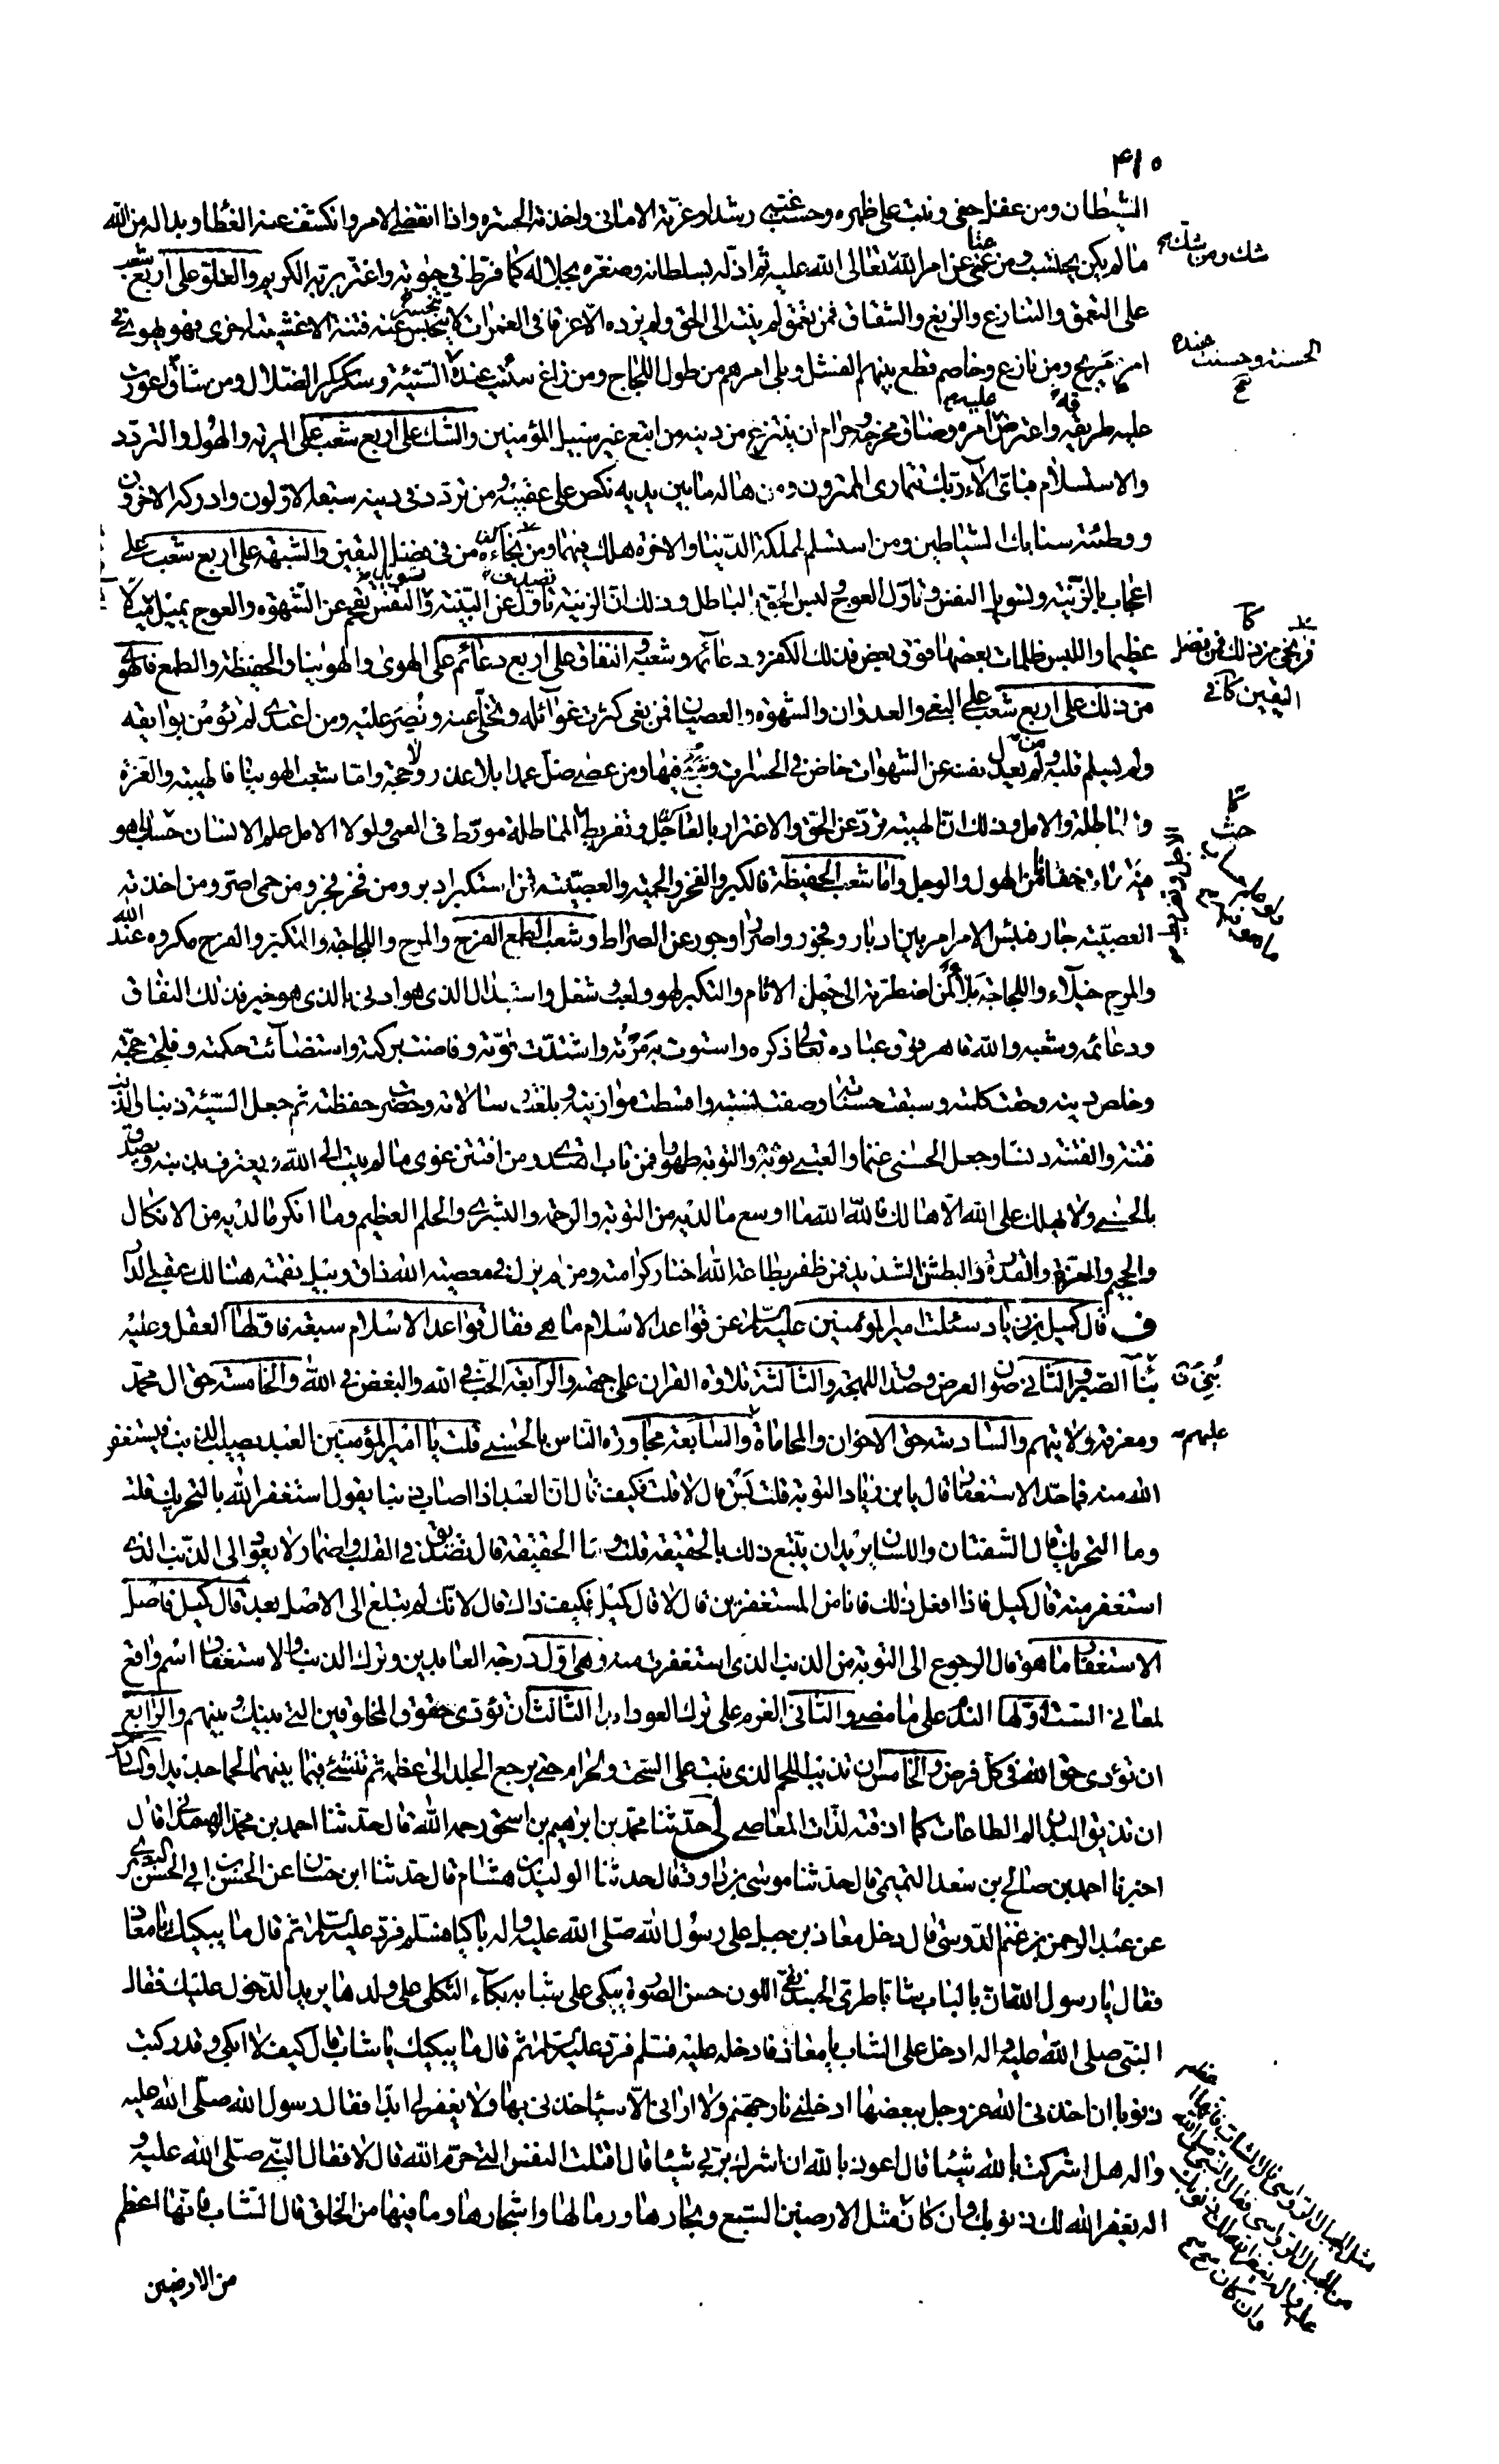 ٤١٠
الشيطان ومن غفل جنى ونبت على ظهره وحسب غيه رشدا وغرته الامانى واخذته الحسرة واذا انقضى الامر وانكشف عنه الغطا وبدا له من الله
ما لم يكن يحتسب ومن عتى عن امر الله تعالى الله عليه ثم اذله بسلطانه وصغره بجلاله كما فرط فى حيوته واغتر بربه الكريم والغلو على اربع شعب
على التعمق والتنازع والزيغ والشقاق فمن تعمق لم ينته الى الحق ولم يزده الا غرقا فى الغمرات لا ينحبس عنه فتنة الا غشيته اخرى فهو يهوى فى
امر مريج ومن نازع وخاصم قطع بينهم الفشل وبلى امرهم من طول اللجاج ومن زاغ ساءت عنده السيئة وسكر سكر الضلال ومن شاق اعورت
عليه طريقه واعترض امره وضاق مخرجه وحرام ان ينتزع من دينه من اتبع غير سبيل المؤمنين والشك على اربع شعب على المرية والهول والتردد
والاستسلام فباى آلاء ربك تتمارى الممترون ومن هاله ما بين يديه نكص على عقبيه ومن تردد فى دينه سبقه الاولون وادركه الاخرون
ووطئته سنابك الشياطين ومن استسلم لهلكة الدنيا والاخرة هلك فيهما ومن نجا من فضل اليقين والشبهة على اربع شعب على
اعجاب بالزينة وتسويل النفس وتأول العوج ولبس الحق بالباطل وذلك ان الزينة تأول عن البينة والنفس تقحم عن الشهوة والعوج يميل ميلا
عظيما واللبس ظلمات بعضها فوق بعض فذلك الكفر ودعائمه وشعبه والنفاق على اربع دعائم على الهوى والهوينا والحفيظة والطمع فالهوى
من ذلك على اربع شعب على البغى والعدوان والشهوة والعصيان فمن بغى كثرت غوآئله وتخلى عنه ونصر عليه ومن اعتدى لم تؤمن بوايقه
ولم يسلم قلبه ومن لم يعدل نفسه عن الشهوات خاض فى الحسرات وسبح فيها ومن عصى ضل عمدا بلا عذر ولا حجة واما شعب الهوينا فالهيبة والغرة
والمماطلة والامل وذلك ان الهيبة ترد عن الحق والاغترار بالعاجل وتفريط المماطلة مورط فى العمى ولولا الامل علم الانسان حساب ما هو
فيه مات خفاتا من الهول والوجل واما شعب الحفيظة فالكبر والفخر والحمية والعصبية فمن استكبر ادبر ومن فخر فجر ومن حمى اصر ومن اخذته
العصبية جار فبئس الامر امر بين ادبار وفجور واصرار وجور عن الصراط وشعب الطمع الفرح والمرح واللجاجة والتكبر والفرح مكروه عند الله
والمرح خيلاء واللجاجة بلاء لمن اضطرته الى حمل الاثام والتكبر لهو ولعب وشغل واستبدال الذى هو ادنى بالذى هو خير فذلك النفاق
ودعائمه وشعبه والله قاهر فوق عباده تعالى ذكره واستوت به مرته واشتدت قوته وفاضت بركته واستضآئت حكمته وفلجت حجته
وخلص دينه وحقت كلمته وسبقت حسناته وصفت نسبته واقسطت موازينه وبلغت رسالاته وحضرت حفظته ثم جعل السيئة ذنبا والذنب
فتنة والفتنة دنسا وجعل الحسنى غنما والعتبى توبة والتوبة طهورا فمن تاب اهتدى ومن افتتن غوى ما لم يتب الى الله ويعترف بذنبه ويصدق
بالحسنى ولا يهلك على الله الا هالك فالله الله ما اوسع ما لديه من التوبة والرحمة والبشرى والحلم العظيم وما انكر ما لديه من الانكال
والجحيم والعزة والقدرة والبطش الشديد فمن ظفر بطاعة الله اختار كرامته ومن لم يزل فى معصية الله ذاق وبيل نقمته هنالك عقبى الدار
ف قال كميل بن زياد سئلت امير المؤمنين عليه السلام عن قواعد الاسلام ما هى فقال قواعد الاسلام سبعة فاولها العقل وعليه
بنآ الصبر والثانى صون العرض وصدق اللهجة والثالثة تلاوة القران على جهته والرابعة الحب فى الله والبغض فى الله والخامسة حق ال محمد
ومعرفة ولايتهم والسادسة حق الاخوان والمحاماة والسابعة مجاورة الناس بالحسنى قلت يا امير المؤمنين العبد يصيب الذنب فيستغفر
الله منه فما حد الاستغفار قال يابن زياد التوبة قلت بس قال لا قلت فكيف قال ان العبد اذا اصاب ذنبا يقول استغفر الله بالتحريك قلت
وما التحريك قال الشفتان واللسان يريد ان يتبع ذلك بالحقيقة قلت وما الحقيقة قال تصديق فى القلب واضمار لا يعود الى الذنب الذى
استغفر منه قال كميل فاذا افعل ذلك فانا من المستغفرين قال لا قال كميل فكيف ذاك قال لانك لم يتبلغ الى الاصل بعد قال كميل فاصل
الاستغفار ما هو قال الرجوع الى التوبة من الذنب الذى استغفرت منه وهى اول درجة العابدين وترك الذنب والاستغفار اسم واقع
لمعانى الست اولها الندم على ما مضى والثانى العزم على ترك العود ابدا الثالث ان تؤدى حقوق المخلوقين التى بينك وبينهم والرابع
ان تؤدى حق الله فى كل فرض والخامس ان تذيب اللحم الذى نبت على السحت والحرام حتى يرجع الجلد الى عظمه ثم تنشئ فيما بينهما لحما جديدا والسادس
ان تذيق البدن الم الطاعات كما اذقته لذات المعاصى لى حدثنا محمد بن ابرهيم بن اسحق رحمه الله قال حدثنا احمد بن محمد الهمدانى قال
اخبرنا احمد بن صالح بن سعد التميمى قال حدثنا موسى بن داود قال حدثنا الوليد بن هشام قال حدثنا ابن حسان عن الحسن بن ابى الحسن البصرى
عن عبد الرحمن بن غنم الدوسى قال دخل معاذ بن جبل على رسول الله صلى الله عليه واله باكيا فسلم فرد عليه السلام ثم قال ما يبكيك يا معاذ
فقال يا رسول الله ان بالباب شابا طرى الجسد نقى اللون حسن الصورة يبكى على شبابه بكآء الثكلى على ولدها يريد الدخول عليك فقال
النبى صلى الله عليه واله ادخل على الشاب يا معاذ فادخله عليه فسلم فرد عليه السلام ثم قال ما يبكيك يا شاب قال كيف لا ابكى وقد ركبت
ذنوبا ان اخذنى الله عز وجل ببعضها ادخلنى نار جهنم ولا ارانى الا سياخذنى بها ولا يغفر لى ابدا فقال رسول الله صلى الله عليه
واله هل اشركت بالله شيئا قال اعوذ بالله ان اشرك بربى شيئا قال اقتلت النفس التى حرم الله قال لا فقال النبى صلى الله عليه و
اله يغفر الله لك ذنوبك وان كان مثل الارضين السبع وبحارها ورمالها واشجارها وما فيها من الخلق قال الشاب فانها اعظم
من الارضين
شك ومن شك
الحسنة وحسنت عنده
فمن نجى من ذلك فمن فضل
اليقين كا فى
بنى
عليهم
مثل الجبال الرواسى قال الشاب فانها اعظم
من الجبال الرواسى فقال النبى صلى الله
عليه واله يغفر الله لك ذنوبك
وان كان